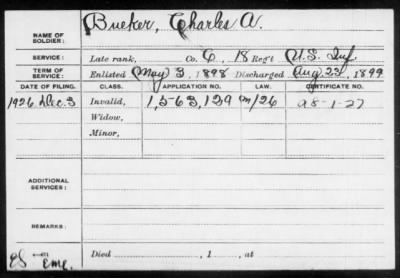 NAME OF SOLDIER: Bueker, Charles A.
SERVICE: Late rank, Co. C, 18 Reg't U.S. Inf.
TERM OF SERVICE: Enlisted May 3, 1898 Discharged Aug 23, 1899
DATE OF FILING. CLASS. APPLICATION NO. LAW. CERTIFICATE NO.
1926 Dec. 3 Invalid, 1,563,139 m/26 A8-1-27
Widow,
Minor,
ADDITIONAL SERVICES:
REMARKS:
Eme.
Died , 1 , at